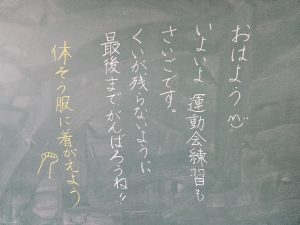 おはよう
いよいよ 運動会練習も
さいごです。
くいが残らないように
最後までがんばろうね!!
体そう服に着がえよう